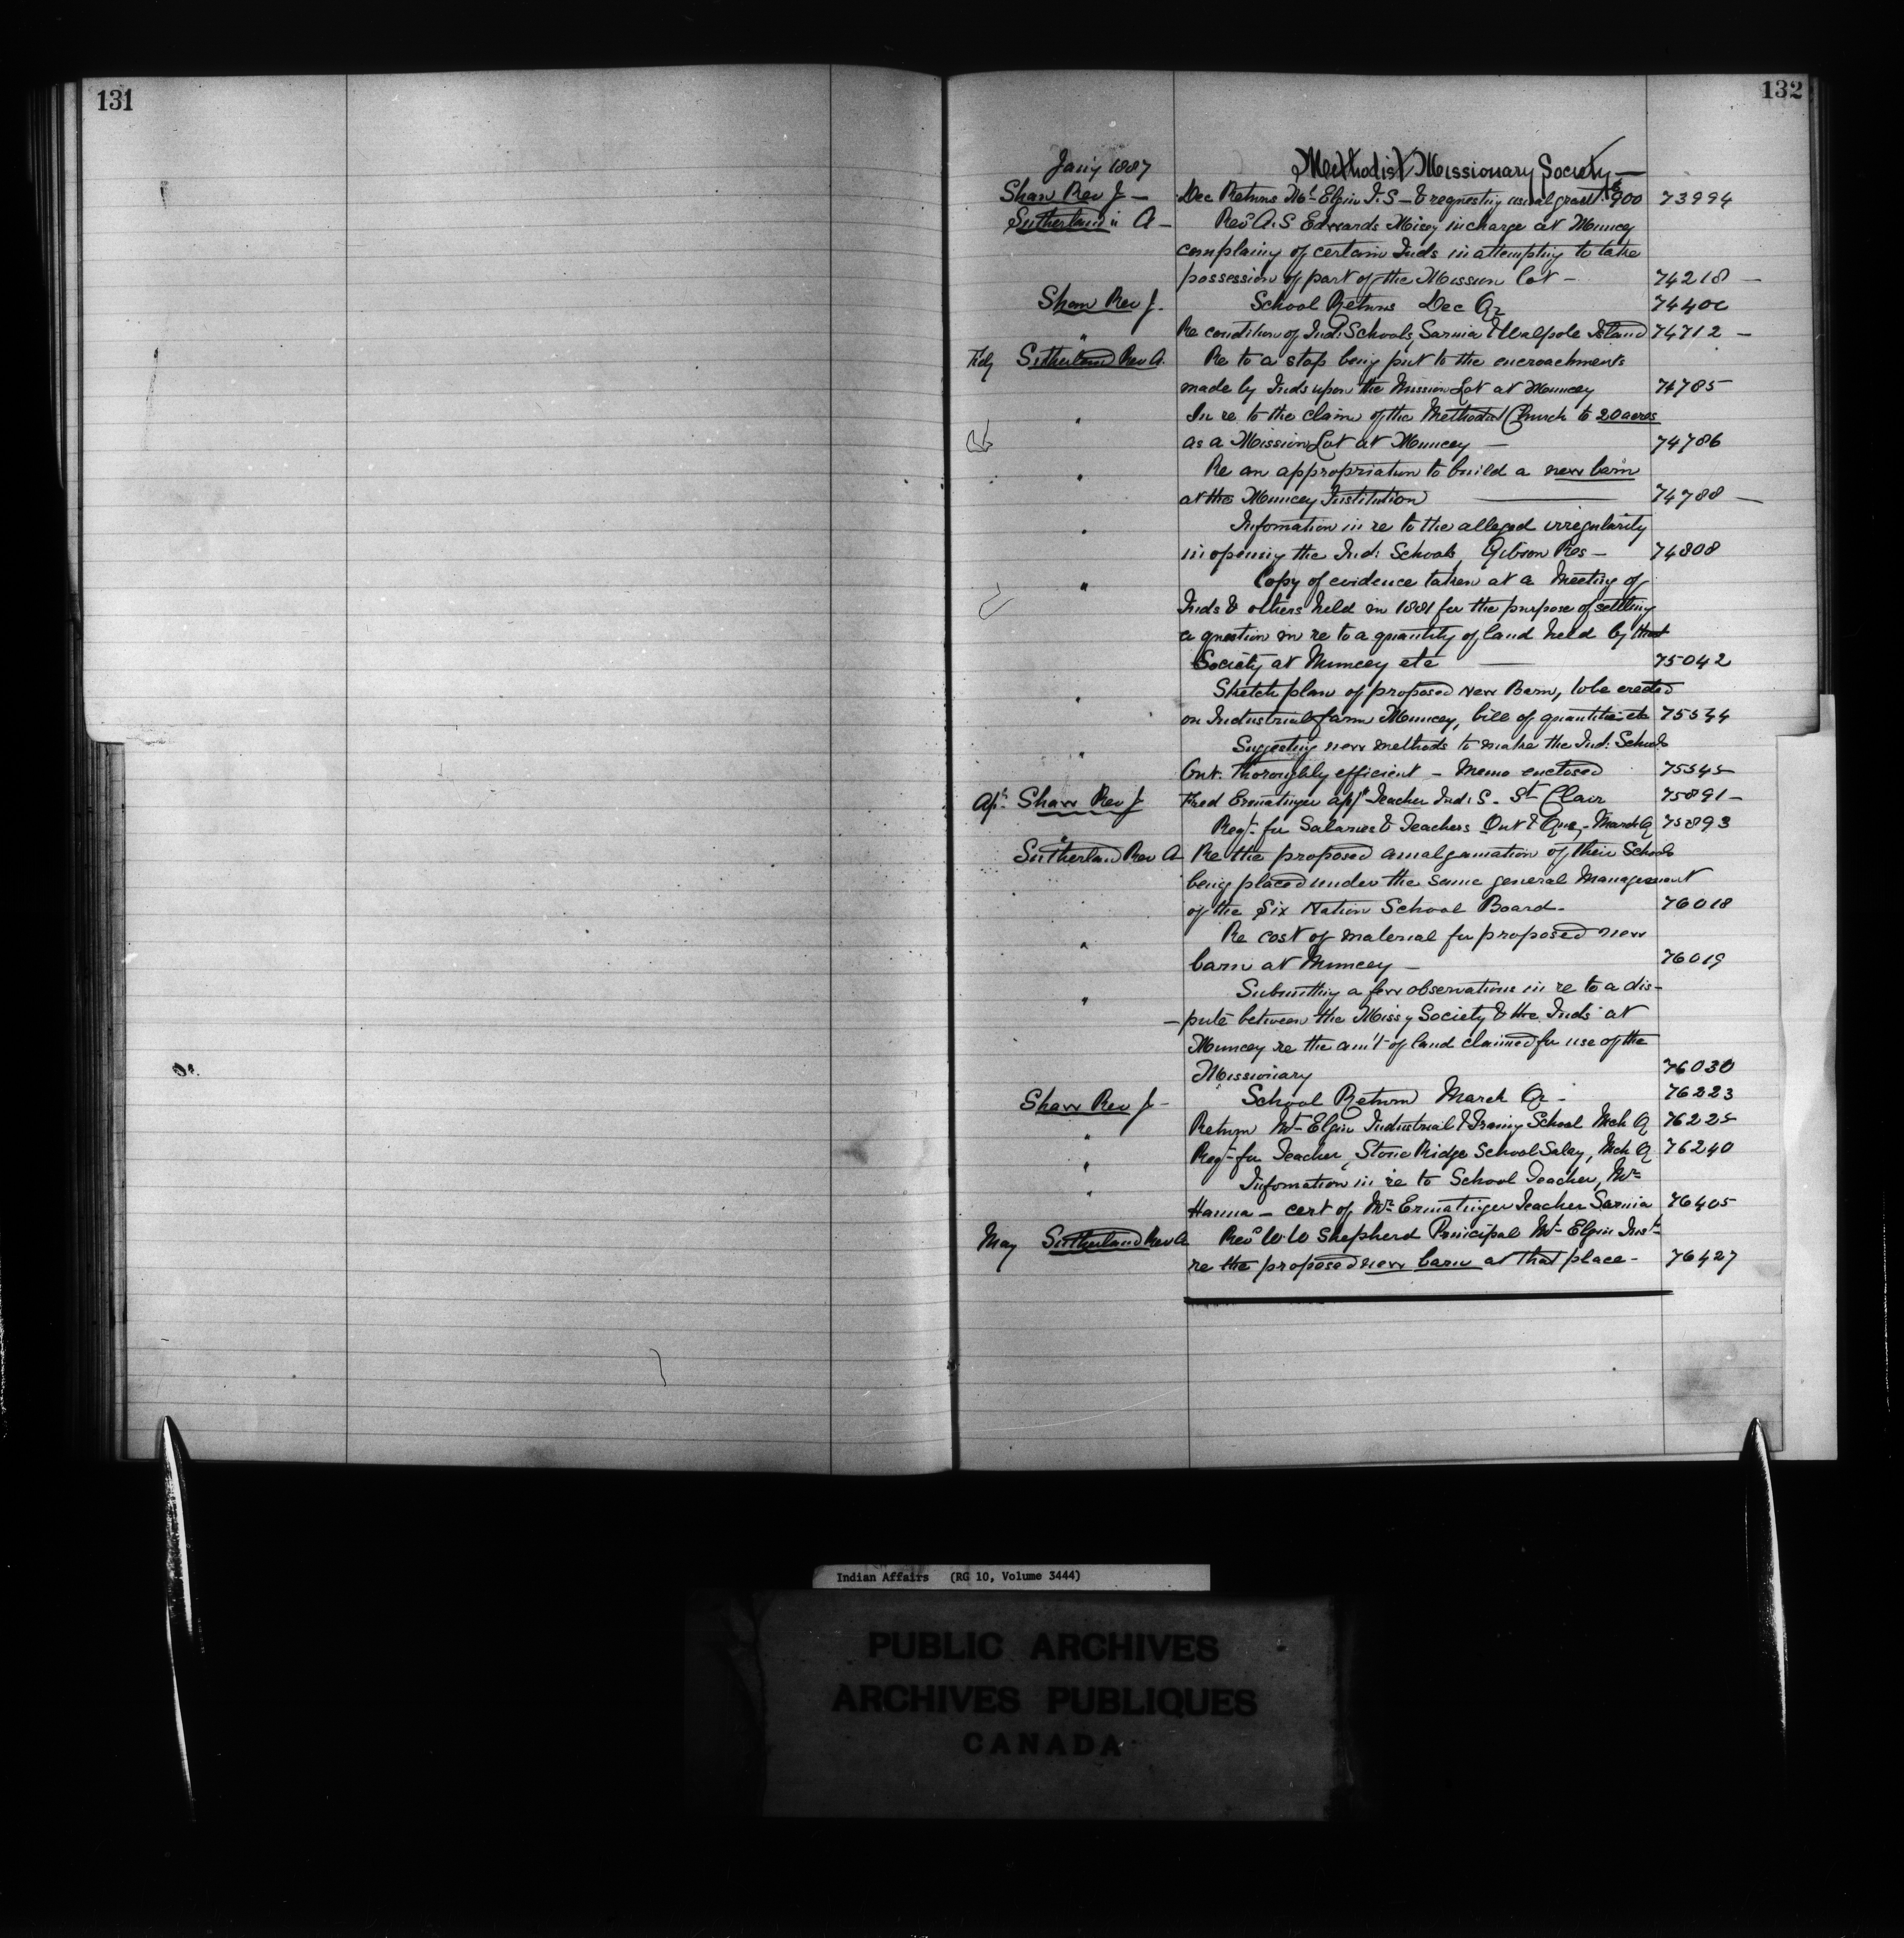 131
132
Jany 1887 Methodist Missionary Society —
Shaw Rev J — Dec Returns Mt Elgin I.S — & requesting usual grant $900 73994
Sutherland " A — Revd A.S Edwards Missy in charge at Muncey
complaing of certain Inds in attempting to take
possession of part of the Mission lot — 74218 —
Shaw Rev J. School Returns Dec Qr 74400
" Re condition of Ind: Schools, Sarnia & Walpole Island 74712 —
Feby Sutherland Rev A. Re to a stop being put to the encroachments
made by Inds upon the Mission Lot at Muncey 74785
" In re to the claim of the Methodist Church to 20 acres
as a Mission Lot at Muncey — 74786
" Re an appropriation to build a new barn
at the Muncey Institution — 74788 —
" Infomation in re to the alleged irregularity
in opening the Ind: Schools, Gibson Res — 74808
" Copy of evidence taken at a Meeting of
Inds & others held in 1881 for the purpose of settling
a question in re to a quantity of land held by that
Society at Muncey etc — 75042
" Sketch plan of proposed new Barn, to be erected
on Industrial farm Muncey, bill of quantities etc 75544
" Suggesting new methods to make the Ind: Schools
Ont. thoroughly efficient — Memo enclosed 75545
Apl. Shaw Rev J Fred Ermatinger appd Teacher Ind: S. St Clair 75891 —
" Reqt for Salaries & Teachers Ont & Que, March Q 75893
Sutherland Rev A Re the proposed amalgamation of their Schools
being placed under the same general Management
of the Six Nation School Board. 76018
" Re cost of material for proposed new
barn at Muncey — 76019
" Submitting a few observations in re to a dis-
-pute between the Missy Society & the Inds at
Muncey re the am't of land claimed for use of the
Missionary 76030
Shaw Rev J — School Return March Qr — 76223
" Return Mt Elgin Industrial & Traing School Mch Q 76225
" Reqt for Teacher, Stone Ridge School Salay, Mch Q 76240
" Infomation in re to School Teacher, Mr
Hanna — cert of Mr Ermatinger Teacher Sarnia 76405
May Sutherland Rev A Revd W.W Shepherd Principal Mt Elgin Instn
re the proposed new barn at that place — 76427
Indian Affairs (RG 10, Volume 3444)
PUBLIC ARCHIVES
ARCHIVES PUBLIQUES
CANADA